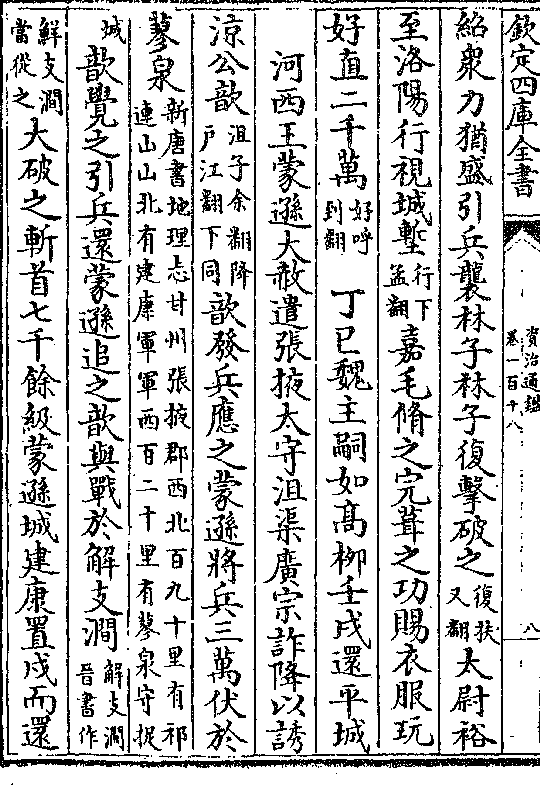 欽定四庫全書
資治通鑑
卷一百十八
八
紹衆力猶盛引兵襲林子林子復擊破之復扶又翻太尉裕
至洛陽行視城塹行下孟翻嘉毛脩之完葺之功賜衣服玩
好直二千萬好呼到翻丁巳魏主嗣如髙柳壬戌還平城
河西王蒙遜大赦遣張掖太守沮渠廣宗詐降以誘
涼公歆沮子余翻降户江翻下同歆發兵應之蒙遜將兵三萬伏於
蓼泉新唐書地理志甘州張掖郡西北百九十里有祁連山山北有建康軍軍西百二十里有蓼泉守捉
城歆覺之引兵還蒙遜追之歆與戰於解支澗解支澗晉書作
鮮支澗當從之大破之斬首七千餘級蒙遜城建康置戍而還